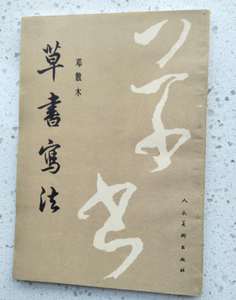 草書
邓散木
草書寫法
人民美術出版社